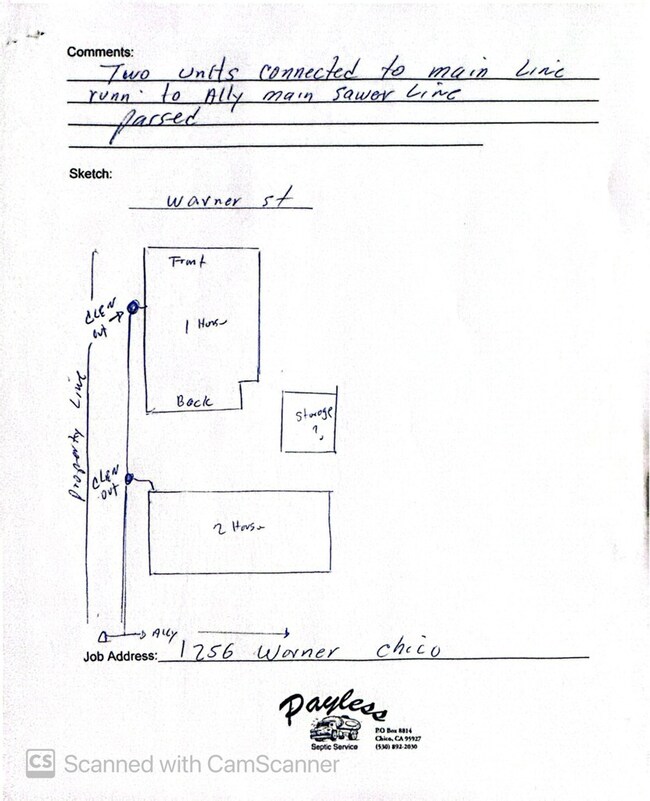 Comments:
Two units connected to main Line
runn. to Ally main sawer Line
passed
Sketch:
Warner st
Front
CLEN
out
1 House
Back
Property Line
Storage
?
CLEN
out
2 House
Ally
Job Address: 1256 Warner Chico
Payless
Septic Service
PO Box 8814
Chico, CA 95927
(530) 892-2030
CS Scanned with CamScanner